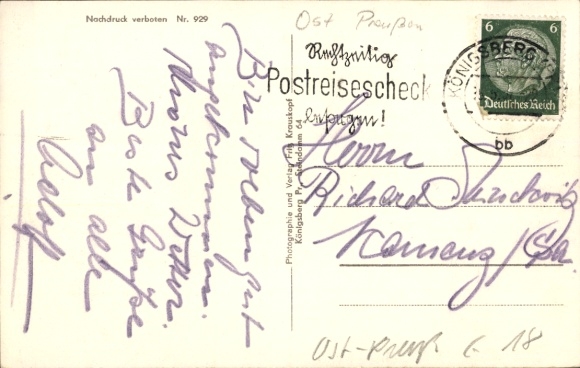 Nachdruck verboten Nr. 929
Ost Preußen
Bin soeben gut
angekommen.
Wetter.
Beste Grüße
an alle
Adolf
Photographie und Verlag Fritz Krauskopf
Königsberg Pr., Steindamm 64
Rechtzeitig
Postreisescheck
besorgen!
KÖNIGSBERG
bb
6 6
Deutsches Reich
Herrn
Richard
Kamenz /Sa.
Ost-Preuß E 18